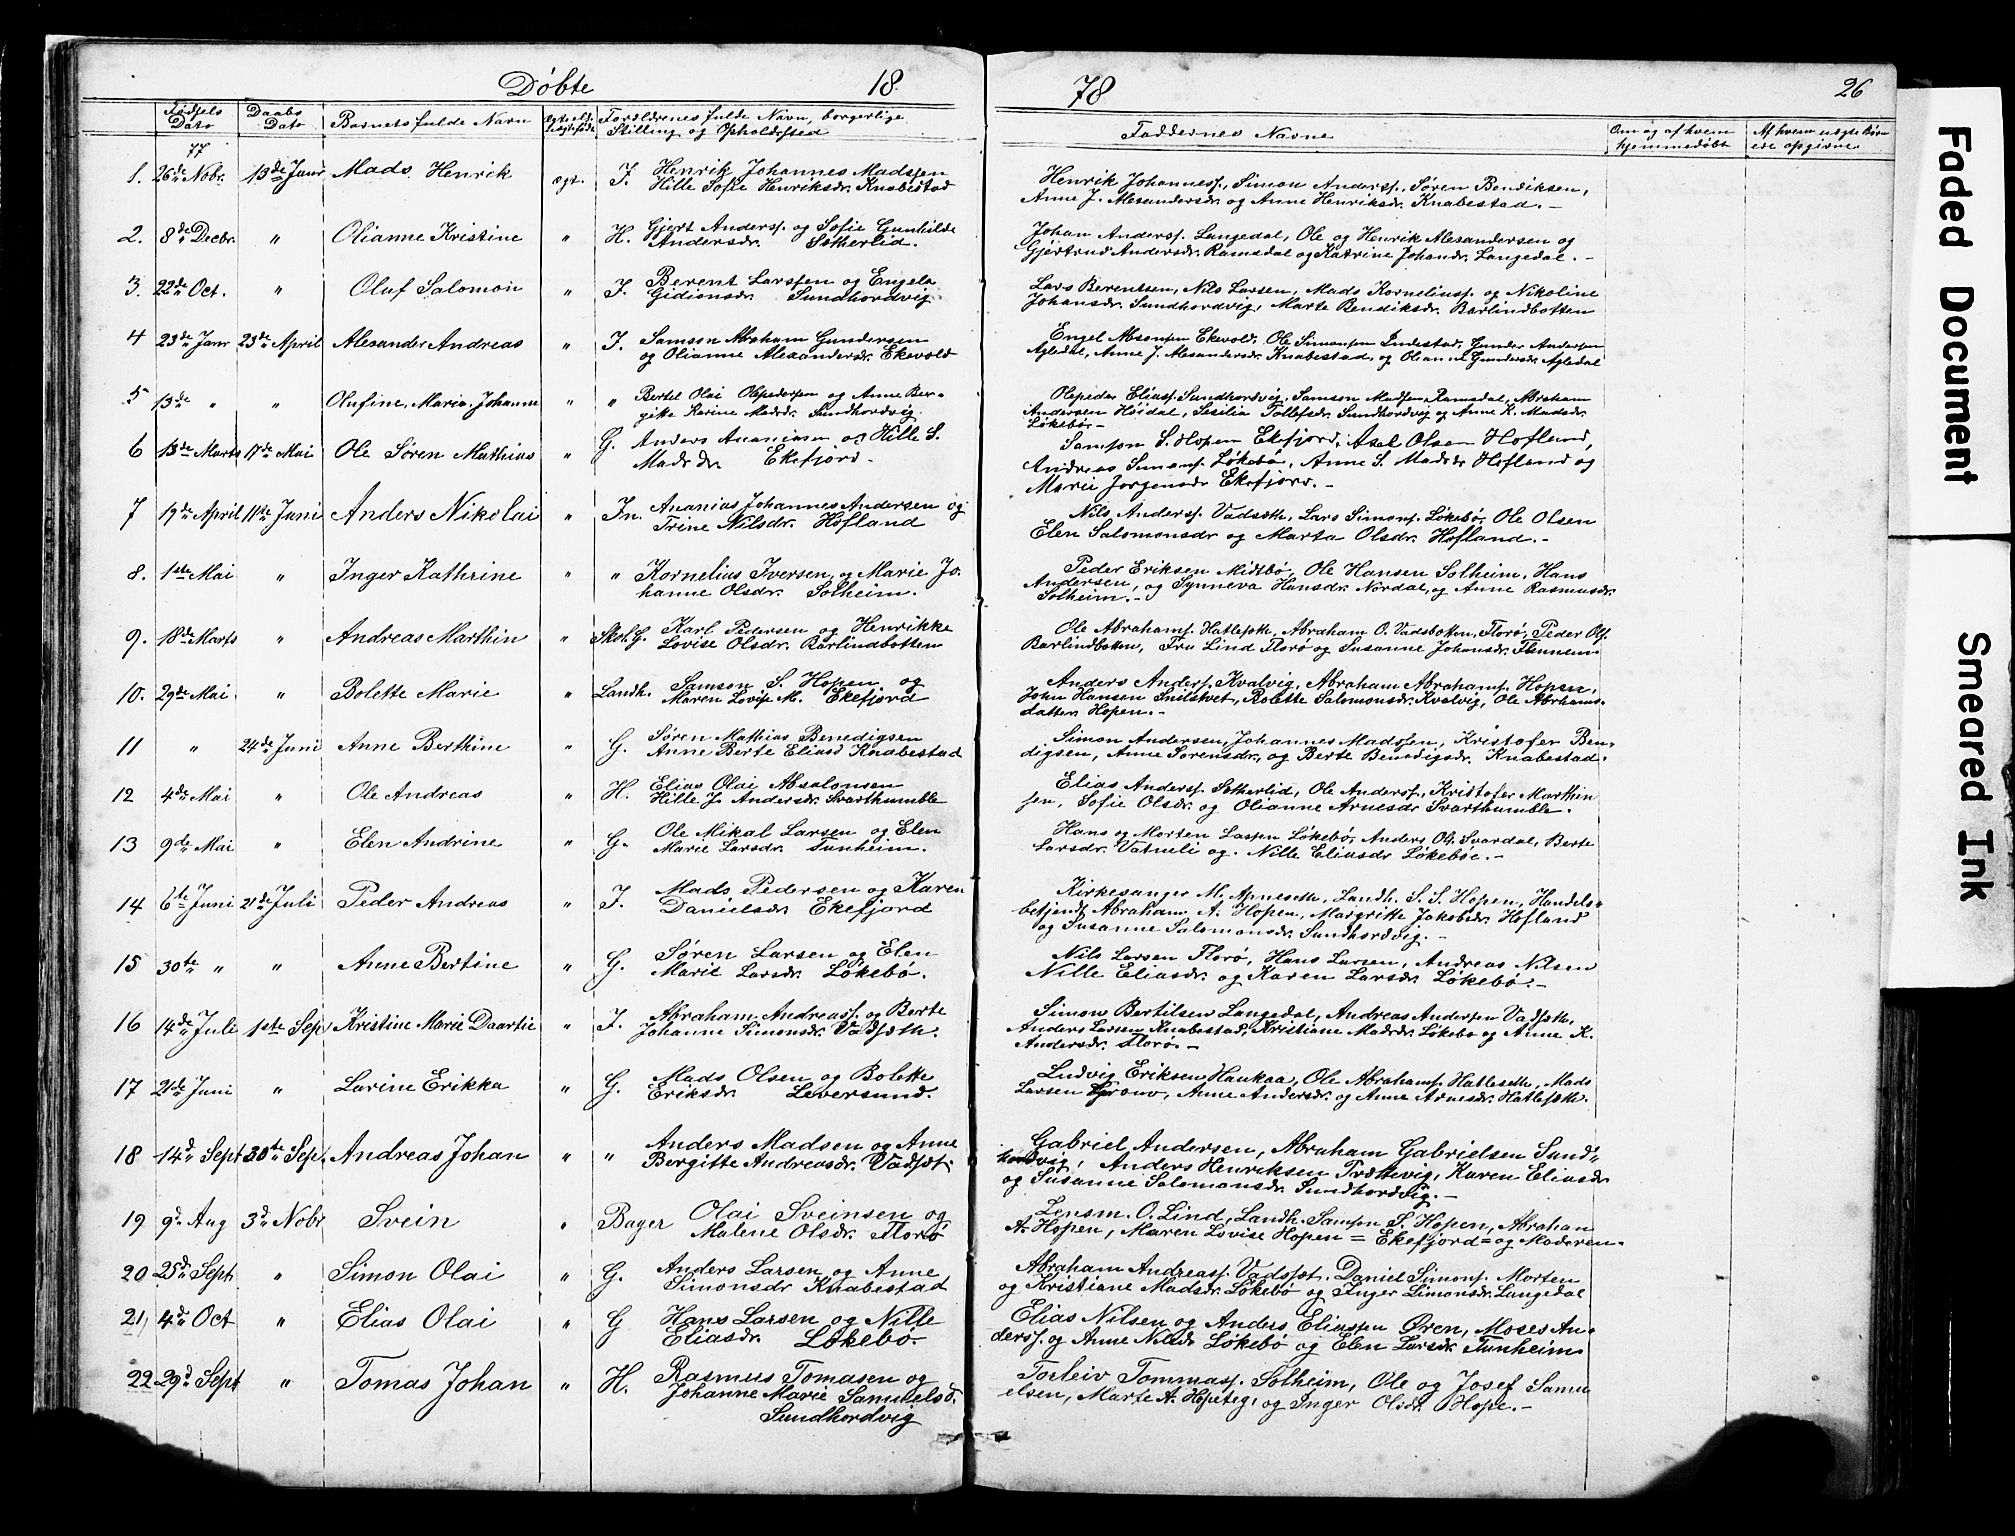 Døbte 18
78 26
Fødsels Dato
Daabs Dato
Barnets fulde Navn
Forældrenes fulde Navn, borgerlige
Stilling og Opholdssted
Faddernes Navne
Om og af hvem
hjemmedøbt
Af hvem uægte Børn
ere opgivne
77
1. 26de Nobr. 13de Janr Mads Henrik ægt. I. Henrik Johannes Madssen
Hille Sofie Henriksdr. Knabestad
Henrik Johanness., Simon Anderss., Søren Bendiksen,
Anne J. Alexandersdr og Anne Henriksdr. Knabestad. -
2. 8de Decbr. " Olianne Kristine " H. Gjert Anderss. og Sofie Gunhilde
Andersdr. Sætherlid.
Johan Anderss. Langedal, Ole og Henrik Alexandersen og
Gjertrud Andersdr. Ramsdal og Katrine Johansdr. Langedal. -
3. 22de Oct. " Oluf Salomon " I. Berent Larssen og Engela
Gidionsdr. Sundhordvig
Lars Berentsen, Nils Larsen, Mads Korneliuss. og Nikoline
Johansdr. Sundhordvig, Marte Bendiksdr. Barlindbotten
4 23de Janr 23de April Alexander Andreas " I. Samson Abraham Gundersen
og Olianne Alexandersdr. Ekevold
Engel Absonsen Ekevold, Ole Simonsen Indestad, Gunder Andersen
Agledal, Anne J. Alexandersdr. Knabestad, og Olianne Gundersdr. Agledal
5 13de " " Olufine Marie Johanne " " Bertel Olai Olepedersen og Anne Ber-
gitte Karine Madsdr. Sundhordvig.
Olepeder Eliass. Sundhordvig, Samson Madsen Ramsdal, Abraham
Andersen Høidal, Sesilia Tollefsdr. Sundhordvig og Anne K. Madsdr.
Løkebø. -
6 13de Marts 17de Mai Ole Søren Mathias " G. Anders Ananiasen og Hille S.
Madsdr. Ekefjord.
Samson S. Hopen Ekefjord, Axel Olsen Hofland,
Andreas Simons. Løkebø, Anne S. Madsdr Hofland og
Marie Jørgensdr Ekefjord. -
7 19de April 11te Juni Anders Nikolai " In. Ananias Johannes Andersen og
Trine Nilsdr. Hofland
Nils Anderss. Vadsæth, Lars Simons. Løkebø, Ole Olsen
Elen Salomonsdr og Marta Olsdr. Hofland. -
8. 1ste Mai " Inger Kathrine " " Kornelius Iversen og Marie Jo-
hanne Olsdr. Solheim.
Peder Eriksen Midtbø, Ole Hansen Solheim, Hans
Andersen, og Synneva Hansdr. Nordal, og Anne Rasmusdr.
Solheim. -
9. 18de Marts " Andreas Marthin " Skol. G. Karl Pedersen og Henrikke
Lovise Olsdr. Barlindbotten
Ole Abrahams. Hatlesæth, Abraham O. Vadsbotten, Florø, Peder Ols.
Barlindbotten, Fru Lind Florø og Susanne Johansdr.
10. 29de Mai " Bolette Marie " Landh. Samson S. Hopen og
Maren Lovise M. Ekefjord
Anders Anders. Kvalvig, Abraham Abrahams. Hopen,
John Hansen Snilstvet, Bolette Salomonsdr. Kvalvig, Ole Abrahams-
datter Hopen. -
11 " 24de Juni Anne Berthine " G. Søren Mathias Benedigsen
Anne Berte Eliasd Knabestad
Simon Andersen, Johannes Madssen, Kristofer Ben-
digsen, Anne Sørensdr., og Berte Benedigsdr. Knabestad.
12 4de Mai " Ole Andreas " H. Elias Olai Absalonsen
Hille J. Andersdr. Svarthumble
Elias Anderss. Sætherlid, Ole Anderss., Kristofer Marthin
sen, Sofie Olsdr. og Olianne Arnesdr Svarthumble.
13 9de Mai " Elen Andrine " G. Ole Mikal Larsen og Elen
Marie Larsdr. Tunheim.
Hans og Morten Larsen Løkebø, Anders Ols. Svardal, Berte
Larsdr. Vatneli og Nille Eliasdr Løkebøe. -
14 6te Juni 21de Juli Peder Andreas " I. Mads Pedersen og Karen
Danielsdr. Ekefjord
Kirkesanger M. Apneseth, Landh. S. S. Hopen, Handels-
betjent Abraham A. Hopen, Margritte Jakobsdr. Hofland
og Susanne Salomonsdr. Sundhordvig. -
15 30te " " Anne Bertine " G. Søren Larsen og Elen
Marie Larsdr. Løkebø.
Nils Larsen Florø, Hans Larsen, Andreas Nilsen
Nille Eliasdr. og Karen Larsdr. Løkebø. -
16 14de Juli 1ste Sep. Kristine Marie Daartie " I. Abraham Andreass. og Berte
Johanne Simonsdr. Vadsæth.
Simon Bertilsen Langedal, Andreas Andersen Vadsæth,
Anders Larsen Knabestad, Kristiane Madsdr. Løkebø og Anne K.
Andersdr. Florø. -
17 21de Juni " Larine Erikka " G. Mads Olsen og Bolette
Eriksdr. Leversund.
Ludvig Eriksen Haukaa, Ole Abrahams. Hatlesæth, Mads
Larsen, Anne Andersdr. og Anne Arnesdr. Hatlesæth.
18 14d. Sept 30te Sep. Andreas Johan " " Anders Madsen og Anne
Bergitte Andreasdr. Vadsæt.
Gabriel Andersen, Abraham Gabrielsen Sund-
hordvig, Anders Henriksen Trættevig, Karen Eliasdr
og Susanne Salomonsdr. Sundhordvig. -
19 9d. Aug 3d. Nobr. Svein " Bager Olai Sveinsen og
Malene Olsdr. Florø
Lensm. O. Lind, Landh. Samson S. Hopen, Abraham
A. Hopen, Maren Lovise Hopen = Ekefjord = og Moderen.
20 25d. Sept " Simon Olai " G. Anders Larsen og Anne
Simonsdr Knabestad
Abraham Andreass. Vadsæt. Daniel Simons. Morten
og Kristiane Madsdr. Løkebø og Inger Simonsdr. Langedal
21 4d. Oct " Elias Olai " G Hans Larsen og Nille
Eliasdr. Løkebø.
Elias Nilsen og Anders Eliassen Øren, Moses An-
derss. og Anne Nilsdr Løkebø og Elen Larsdr Tunheim.
22 29d. Sept " Tomas Johan " H. Rasmus Tomasen og
Johanne Marie Samuelsd.
Sundhordvig
Torleiv Tommass. Solheim, Ole og Josef Samu
elsen, Marte A. Hopsteg, og Inger Olsdr. Hope. -
Faded Document
Smeared Ink